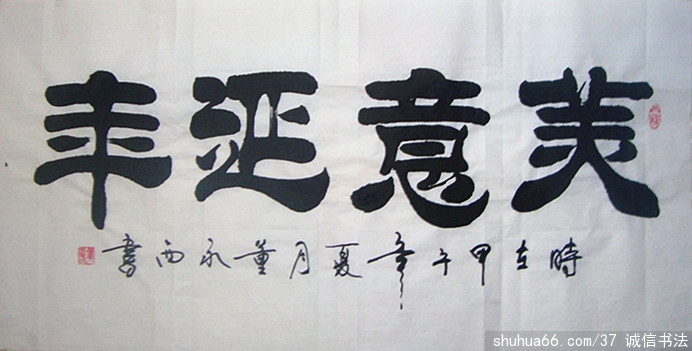 美意延年
時在甲午年夏月董永西書
shuhua66.com/37 诚信书法